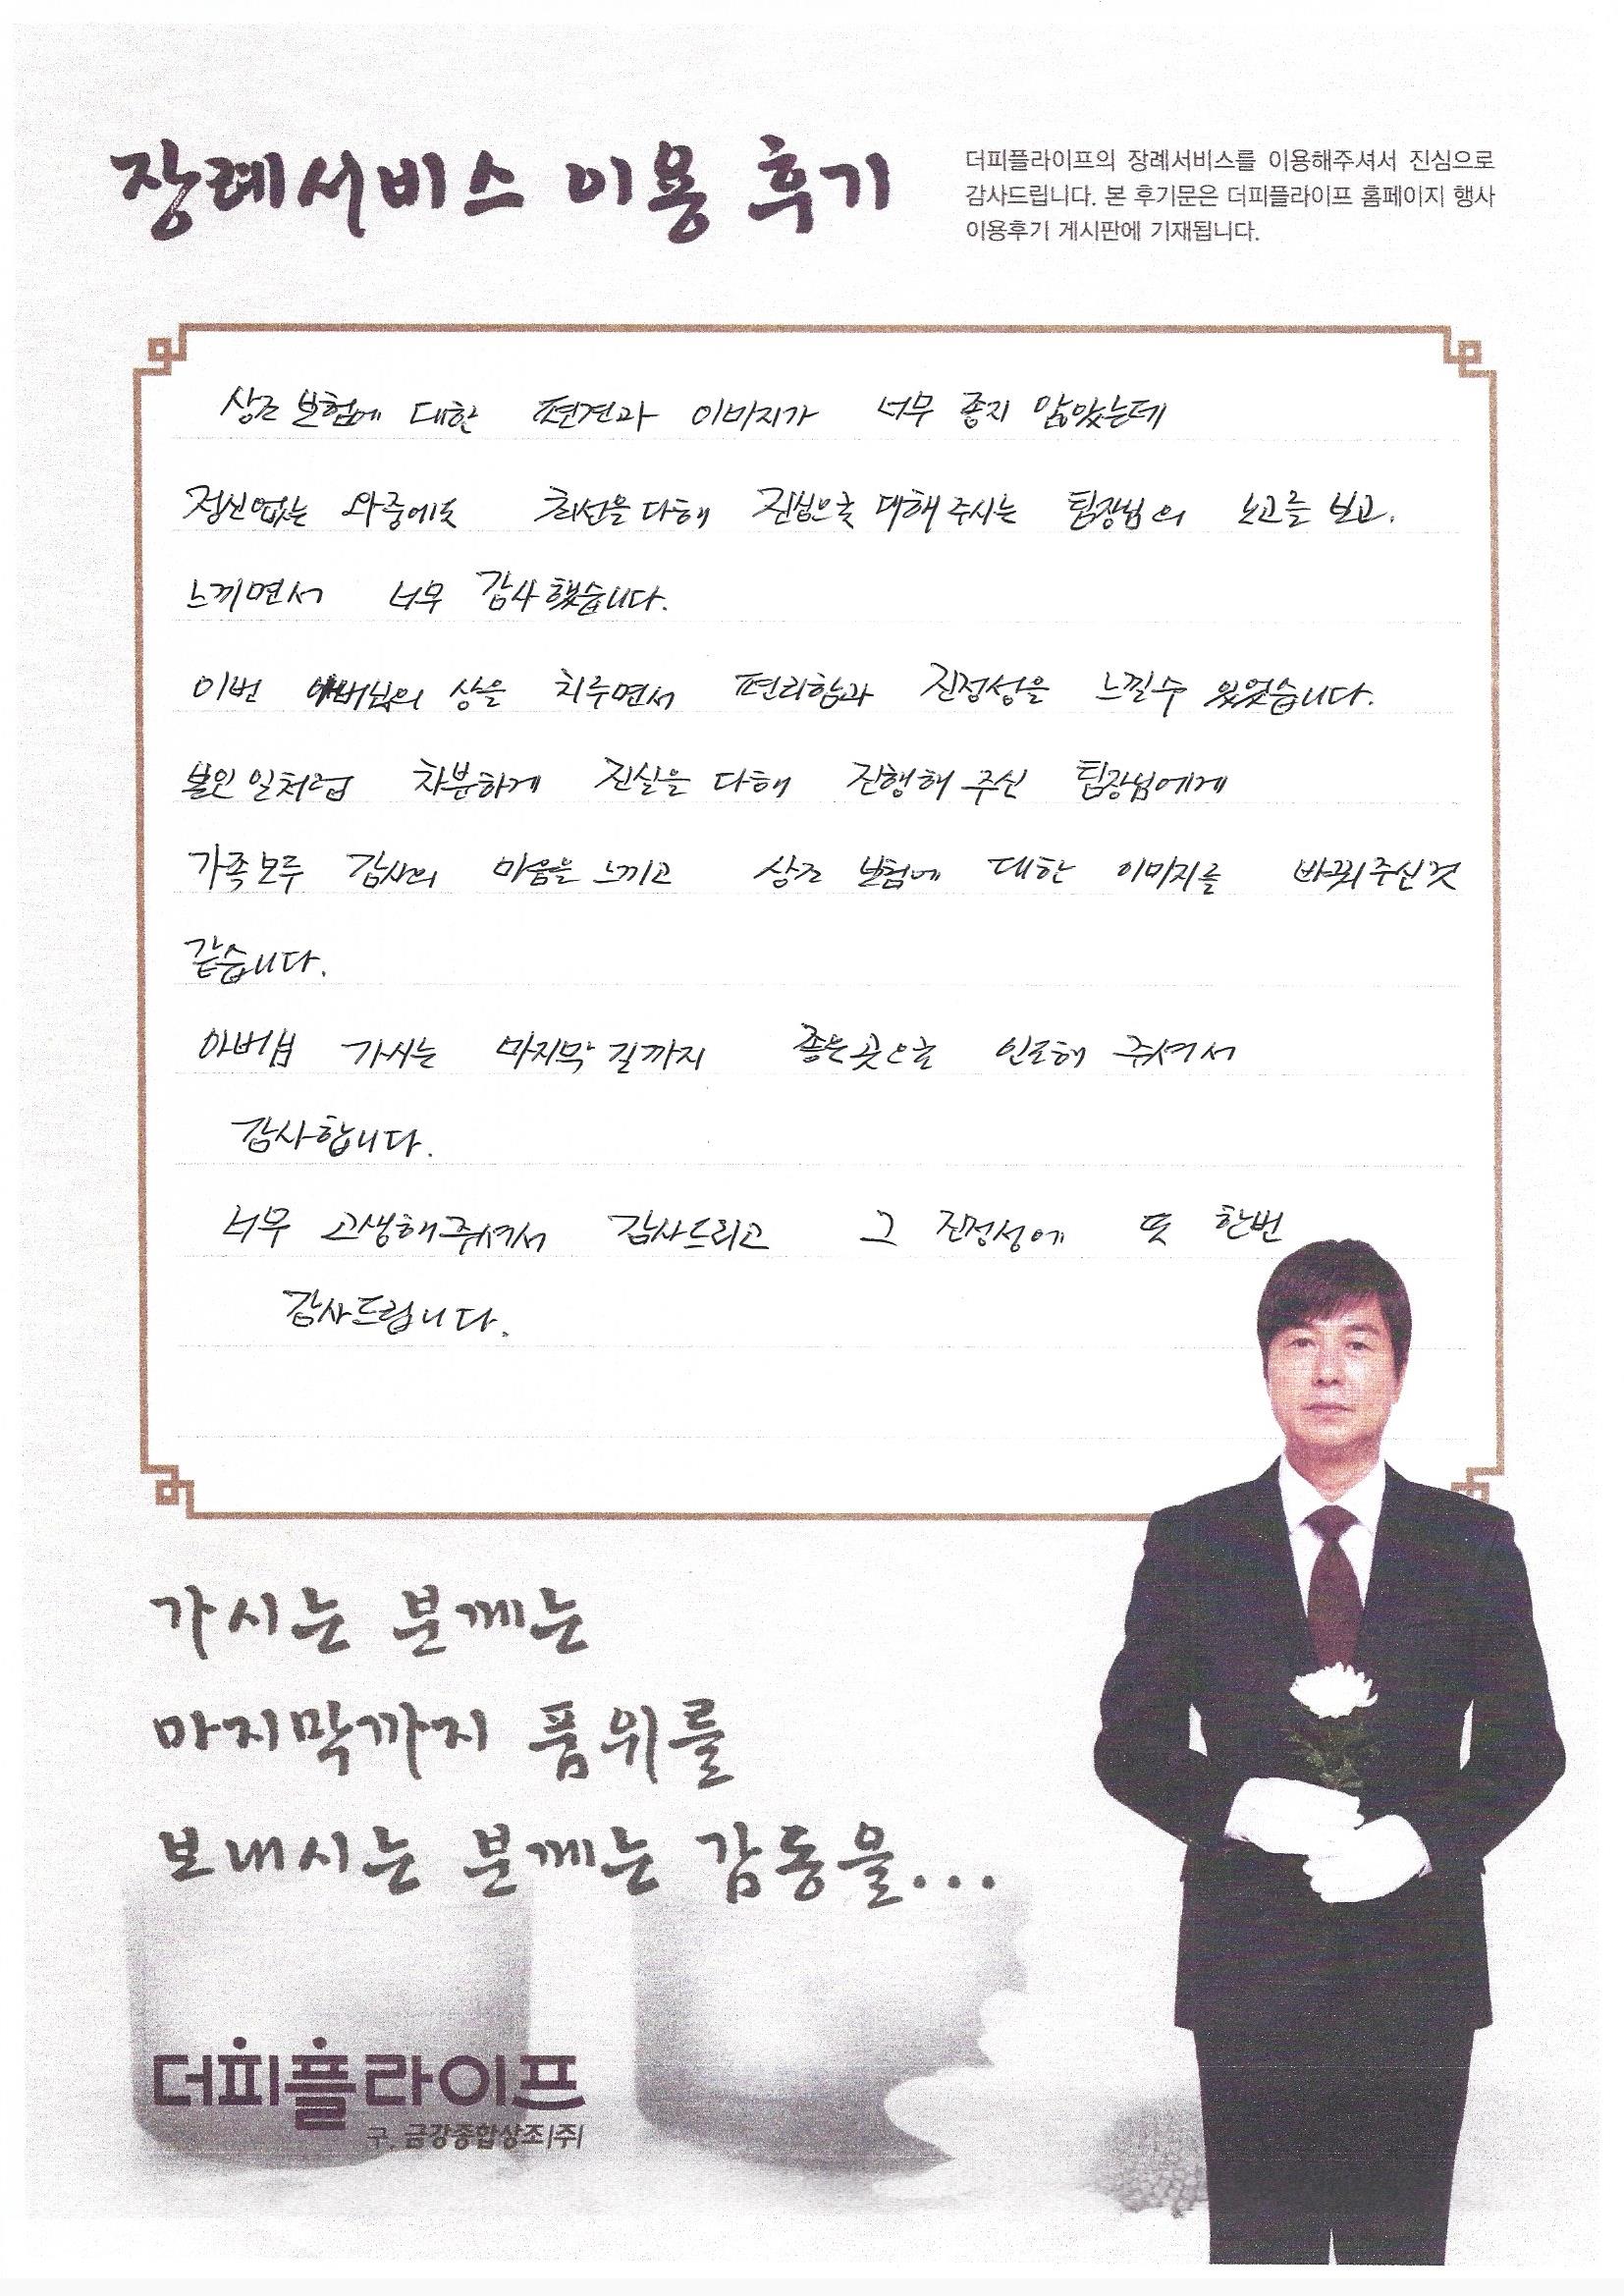 장례서비스 이용 후기
더피플라이프의 장례서비스를 이용해주셔서 진심으로
감사드립니다. 본 후기문은 더피플라이프 홈페이지 행사
이용후기 게시판에 기재됩니다.
상조 보험에 대한 편견과 이미지가 너무 좋지 않았는데
정신없는 와중에도 최선을 다해 진심으로 대해 주시는 팀장님의 노고를 보고.
느끼면서 너무 감사했습니다.
이번 아버님의 상을 치루면서 편리함과 진정성을 느낄수 있었습니다.
본인 일처럼 차분하게 진실을 다해 진행해 주신 팀장님에게
가족모두 감사의 마음을 느끼고 상조 보험에 대한 이미지를 바꿔주신것
같습니다.
아버님 가시는 마지막 길까지 좋은곳으로 인도해 주셔서
감사합니다.
너무 고생해주셔서 감사드리고 그 진정성에 또 한번
감사드립니다.
가시는 분께는
마지막까지 품위를
보내시는 분께는 감동을...
더피플라이프
구. 금강종합상조(주)